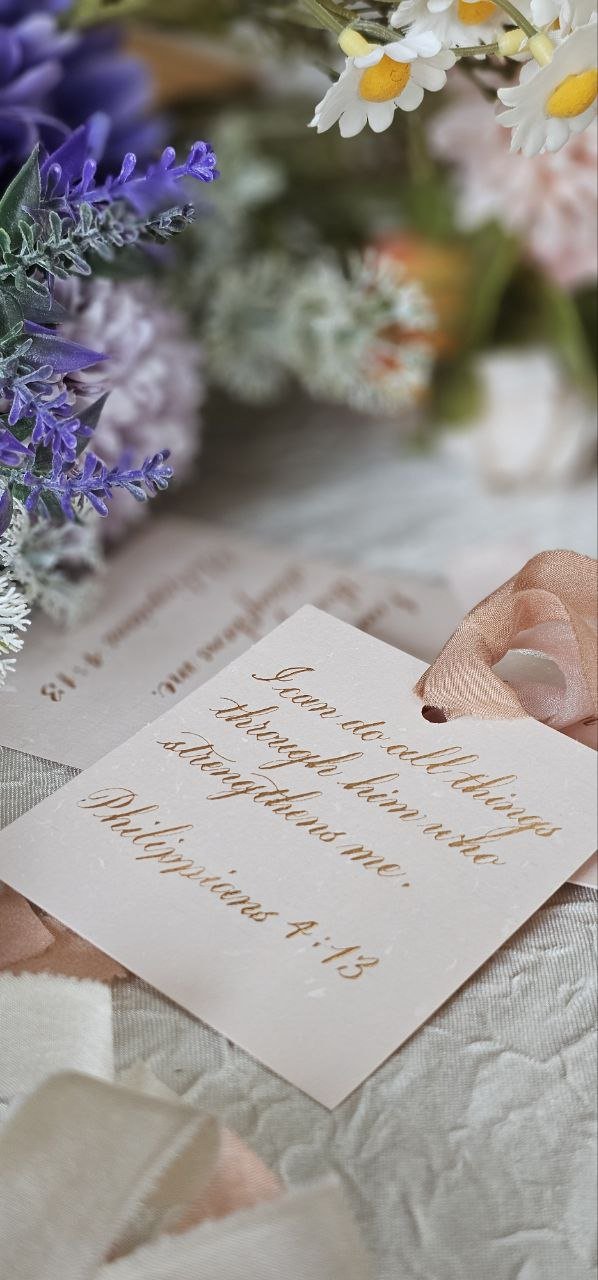 I can do all things
through him who
strengthens me.
Philippians 4:13
strengthens me.
Philippians 4:13